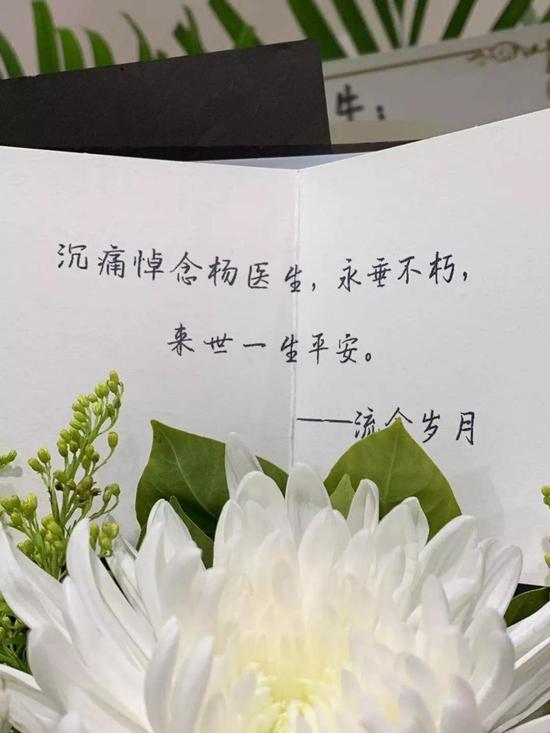 牛：
沉痛悼念杨医生，永垂不朽，
来世一生平安。
——流金岁月